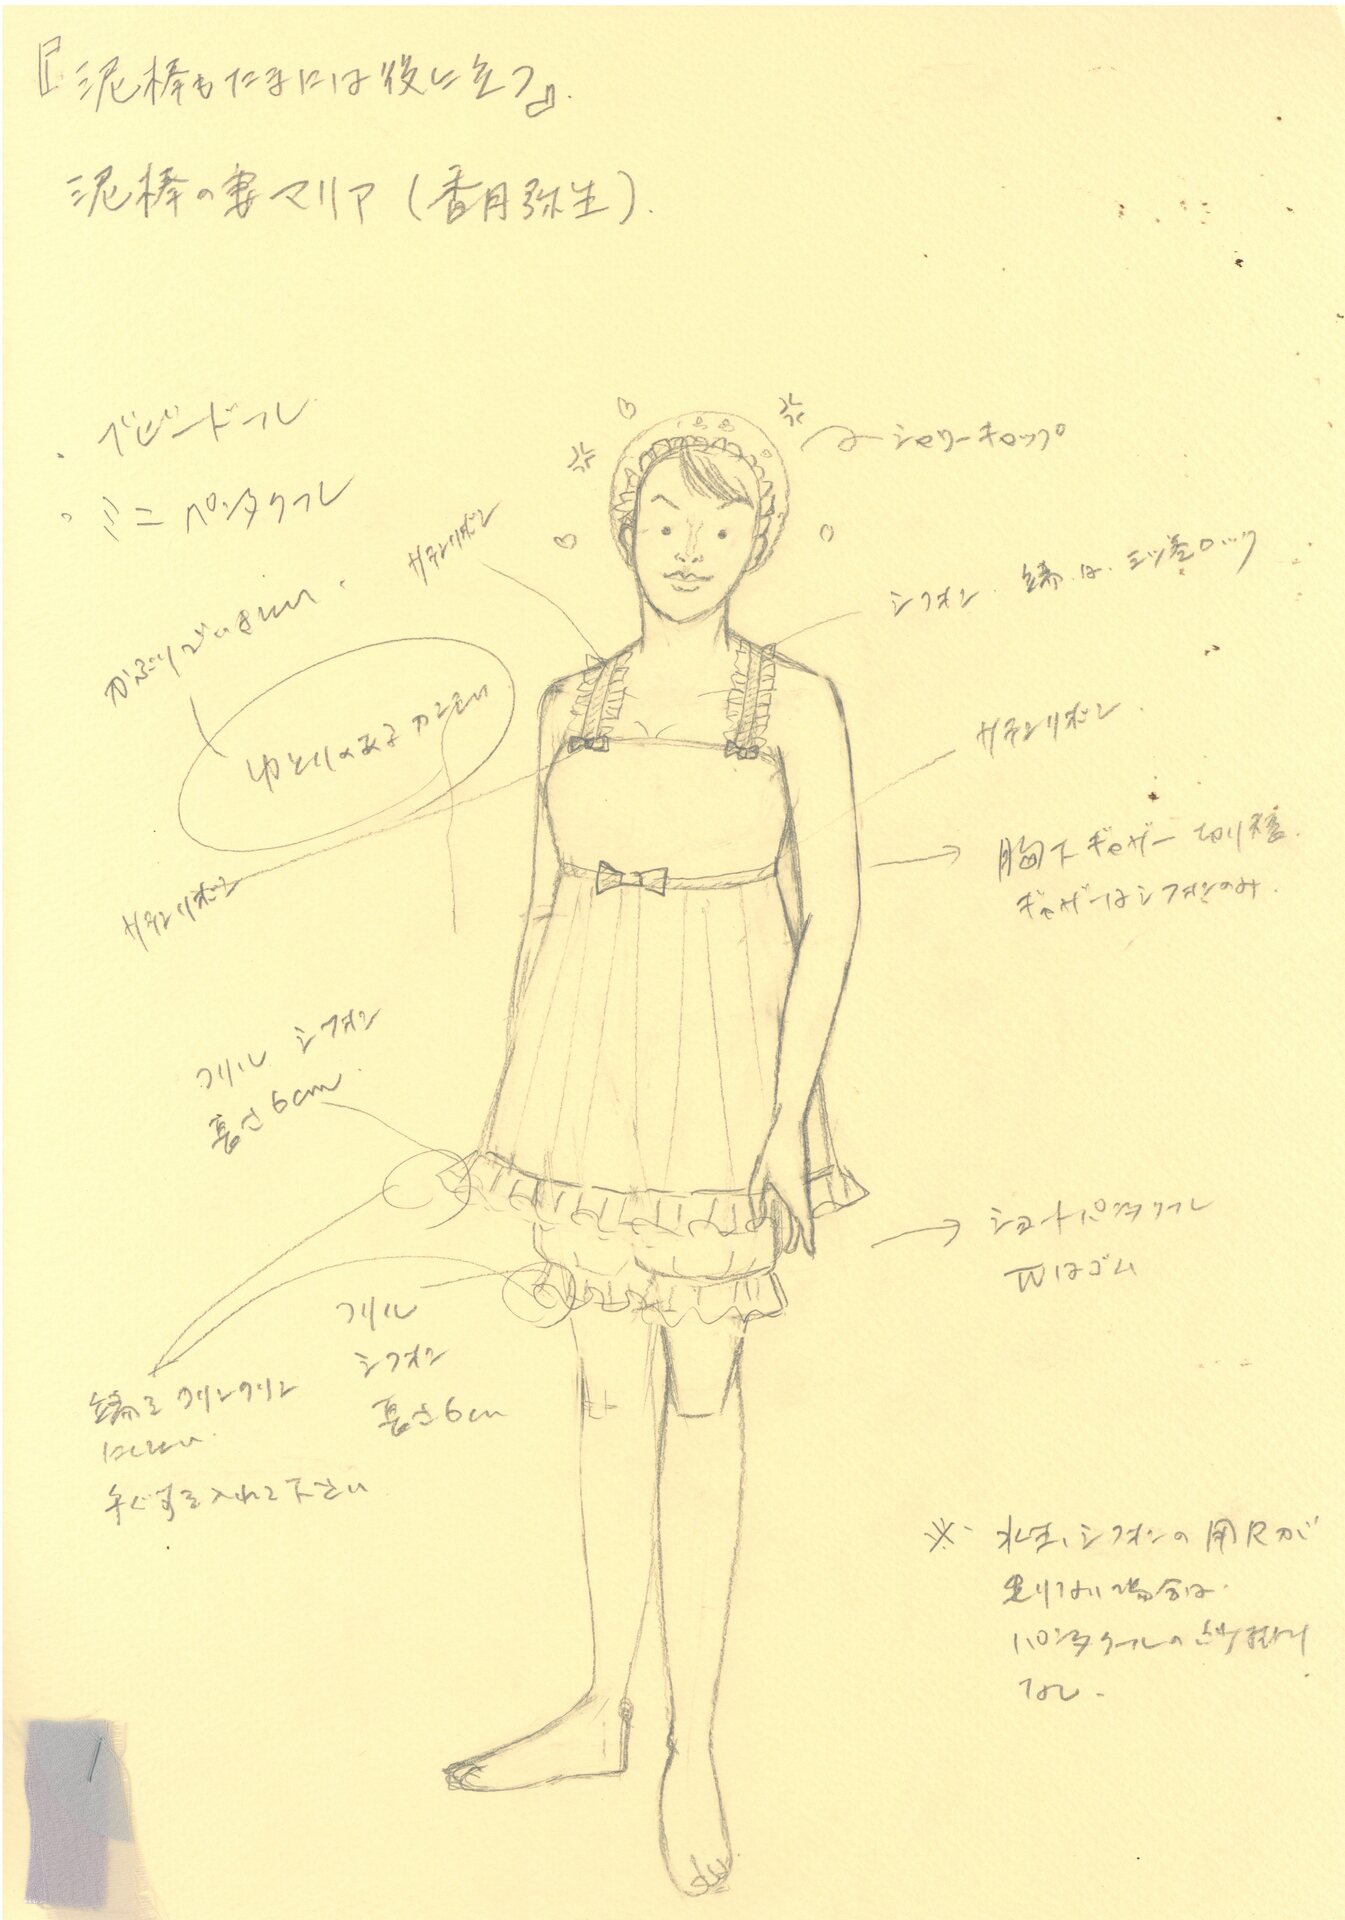 『泥棒もたまには役に立つ』.
泥棒の妻マリア（香月弥生）.
・ベビードール
・ミニパンタクール
かぶりでいきたい.
ゆとりの出る カンじい
サテンリボン
シャワーキャップ
シフォン. 端は. 三ツ巻ロック
サテンリボン.
胸下ギャザー切り替.
ギャザーはシフォンのみ.
サテンリボン
フリル シフォン
長さ6cm.
ショートパンタクール
Wはゴム
フリル
シフォン
長さ6cm
端をクリンクリン
にしたい.
テグスを入れて下さい
※. 水玉、シフォンの用尺が
足りない場合は.
パンタクールの
なし.